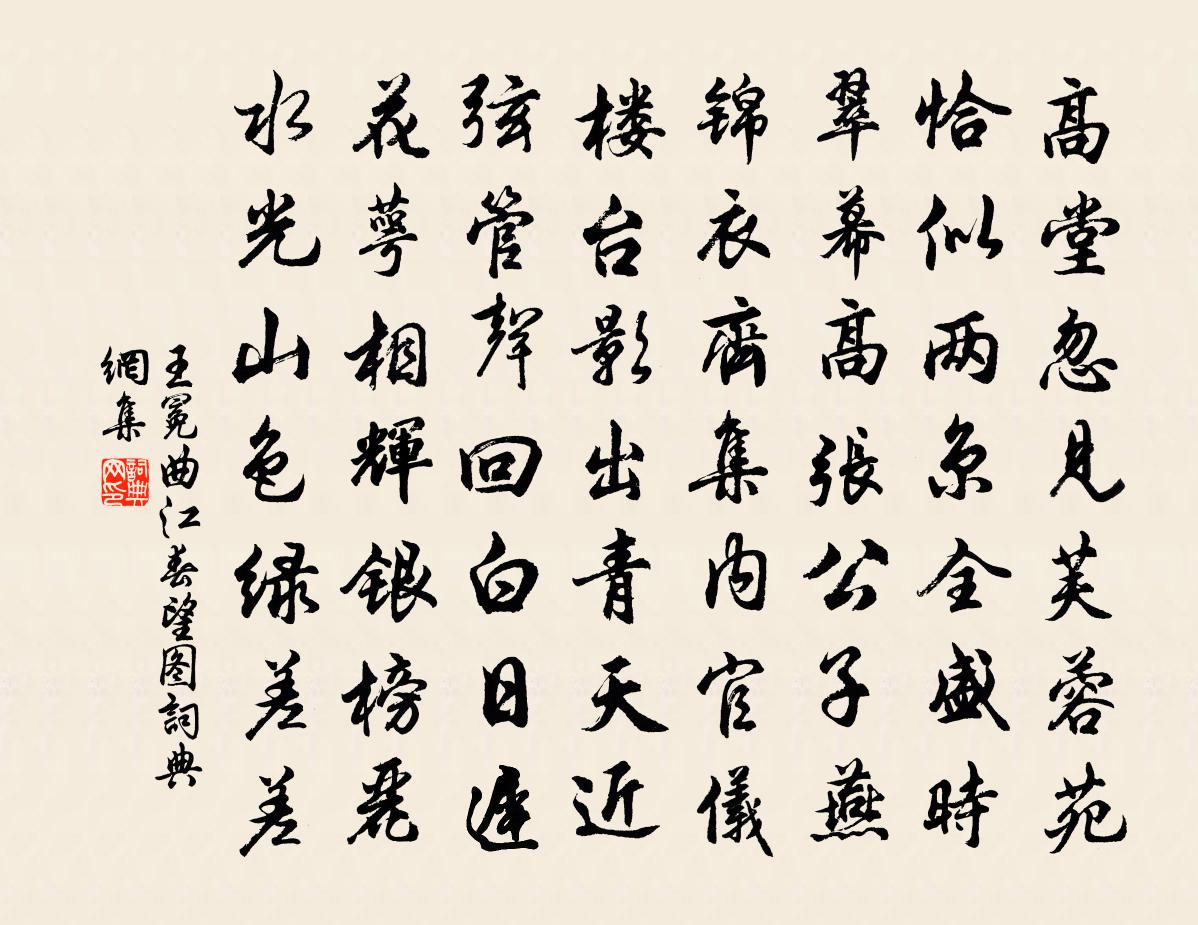 高堂忽见芙蓉苑
恰似两京全盛時
翠幕高張公子燕
锦衣齊集内官儀
楼台影出青天近
弦管聲回白日遲
花萼相輝銀榜麗
水光山色绿差差
王冕曲江春望图詞典
網集
詞典
网印